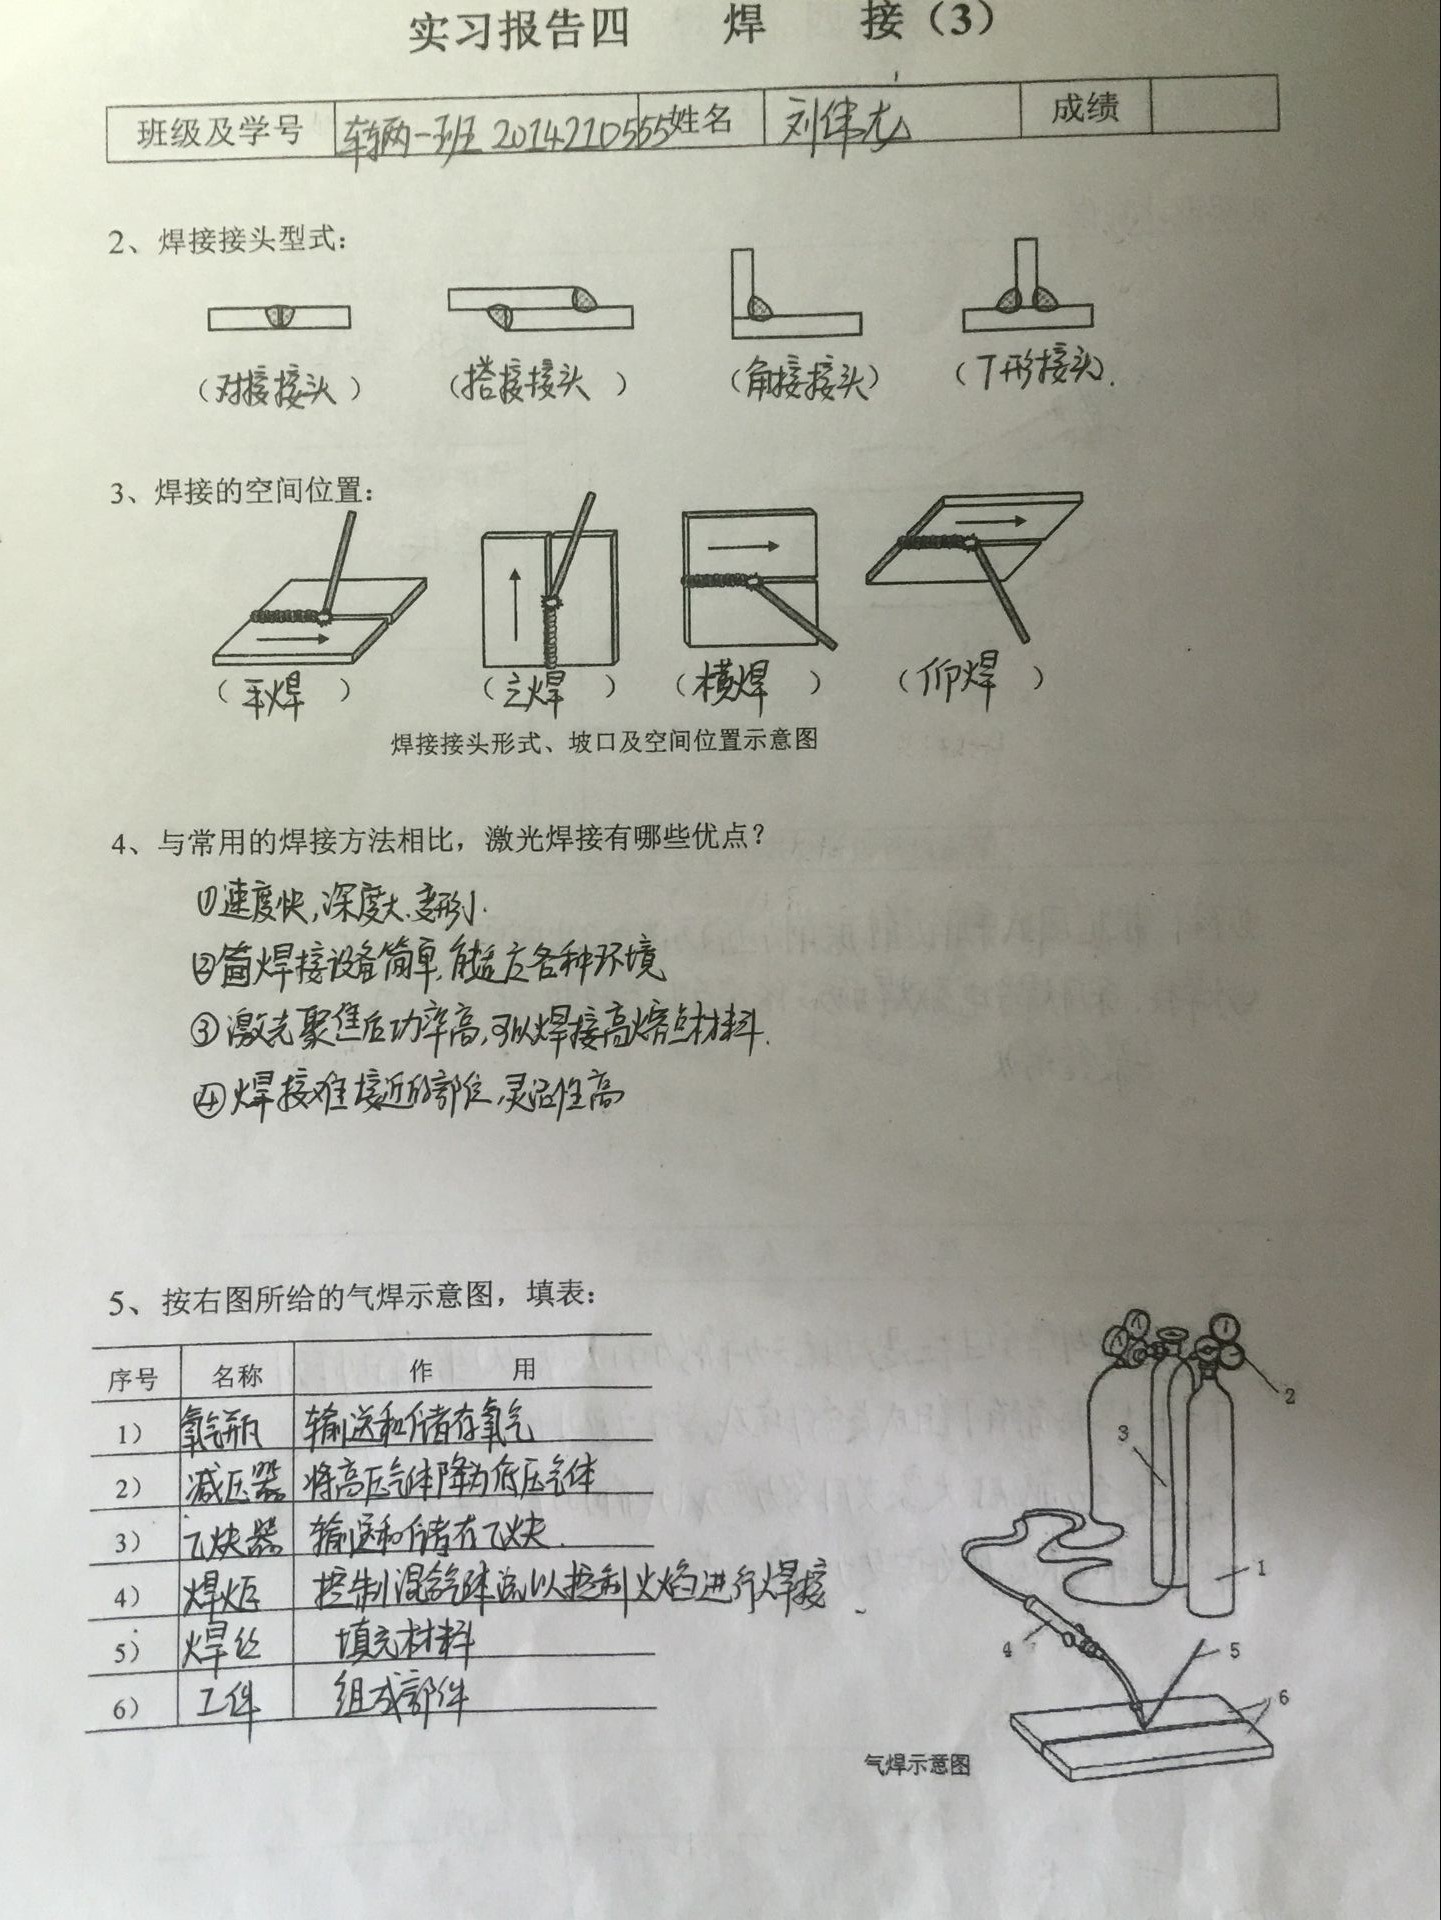 实习报告四 焊 接（3）
班级及学号 车辆一班 2014210555 姓名 刘伟龙 成绩
2、焊接接头型式：
（对接接头） （搭接接头） （角接接头） （T形接头）.
3、焊接的空间位置：
（平焊） （立焊） （横焊） （仰焊）
焊接接头形式、坡口及空间位置示意图
4、与常用的焊接方法相比，激光焊接有哪些优点？
①速度快,深度大.变形小.
②焊接设备简单,能适应各种环境
③激光聚焦后功率高,可以焊接高熔点材料.
④焊接难接近的部位,灵活性高
5、按右图所给的气焊示意图，填表：
序号 名称 作 用
1） 氧气瓶 输送和储存氧气
2） 减压器 将高压气体降为低压气体
3） 乙炔器 输送和储存乙炔.
4） 焊炬 控制混合气体流以控制火焰进行焊接
5） 焊丝 填充材料
6） 工件 组成部件
2
3
1
4
5
6
气焊示意图